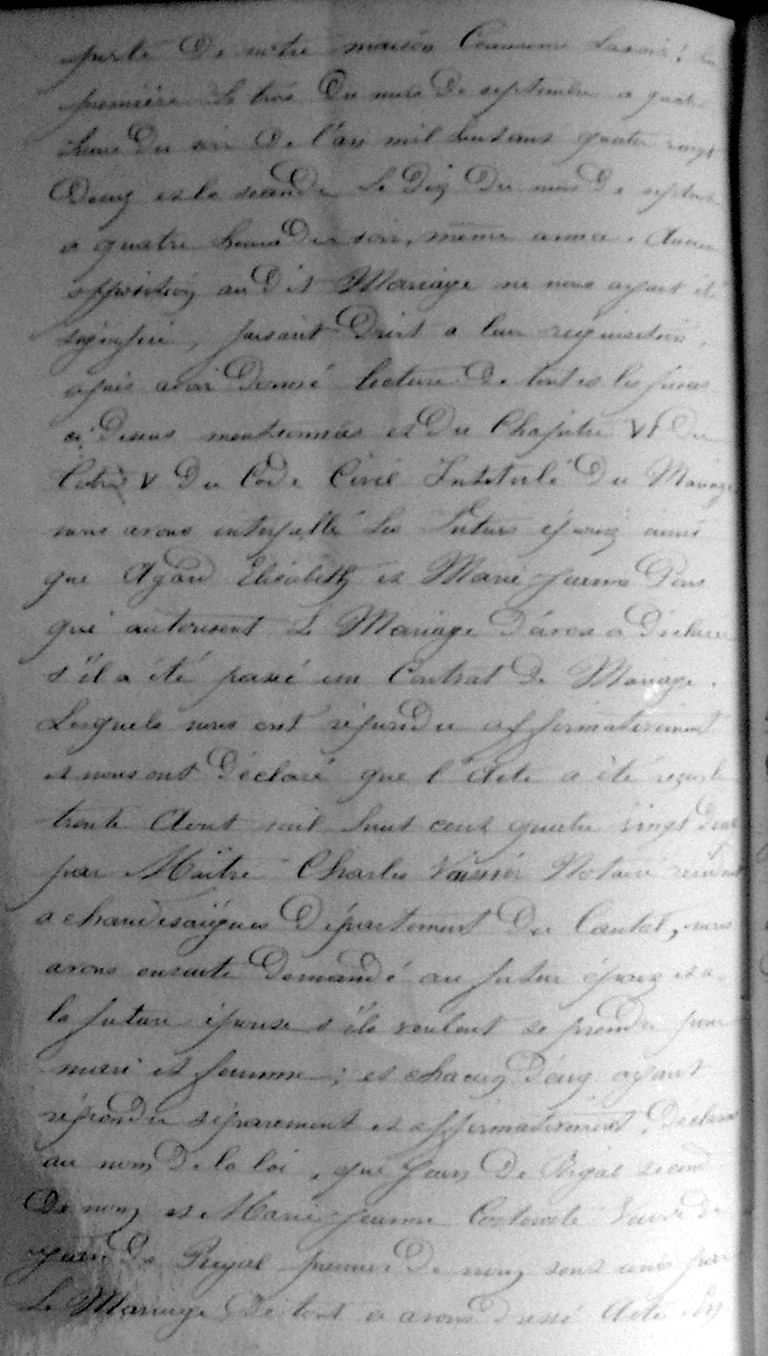 porte De notre maison Commune Savoir! la
première le trois Du mois De septembre a quatre
heure Du soir De l'an mil huit cent quatre vingt
Deux et la seconde le Dix Du mois De septembre
a quatre heure Du soir, même année. Aucune
opposition au Dit Mariage ne nous ayant été
signifié, faisant Droit a leur requisition,
après avoir Donné lecture De toutes les pièces
ci Dessus mentionnées et Du Chapitre VI Du
titre V Du Code Civil Intitulé Du Mariage
nous avons interpellé les futurs époux ainsi
que Elisabeth et Marie Jeanne
qui autorisent le Mariage a Déclarer
s'il a été passé un Contrat De Mariage.
Lesquels nous ont répondu affirmativement
et nous ont Déclaré que l'Acte a été reçu le
trente Aout mil huit cent quatre vingt Deux
par Maître Charles Notaire résidant
a chaudesaigues Département Du Cantal, nous
avons ensuite Demandé au futur époux et a
la future épouse s'ils veulent se prendre pour
mari et femme; et chacun D'eux ayant
répondu séparement et affirmativement, Déclarons
au nom De la loi, que Jean De Rigal second
De nom et Marie Jeanne Veuve De
Jean De Rigal premier De nom sont unis par
Le Mariage De tout ce avons Dressé Acte En